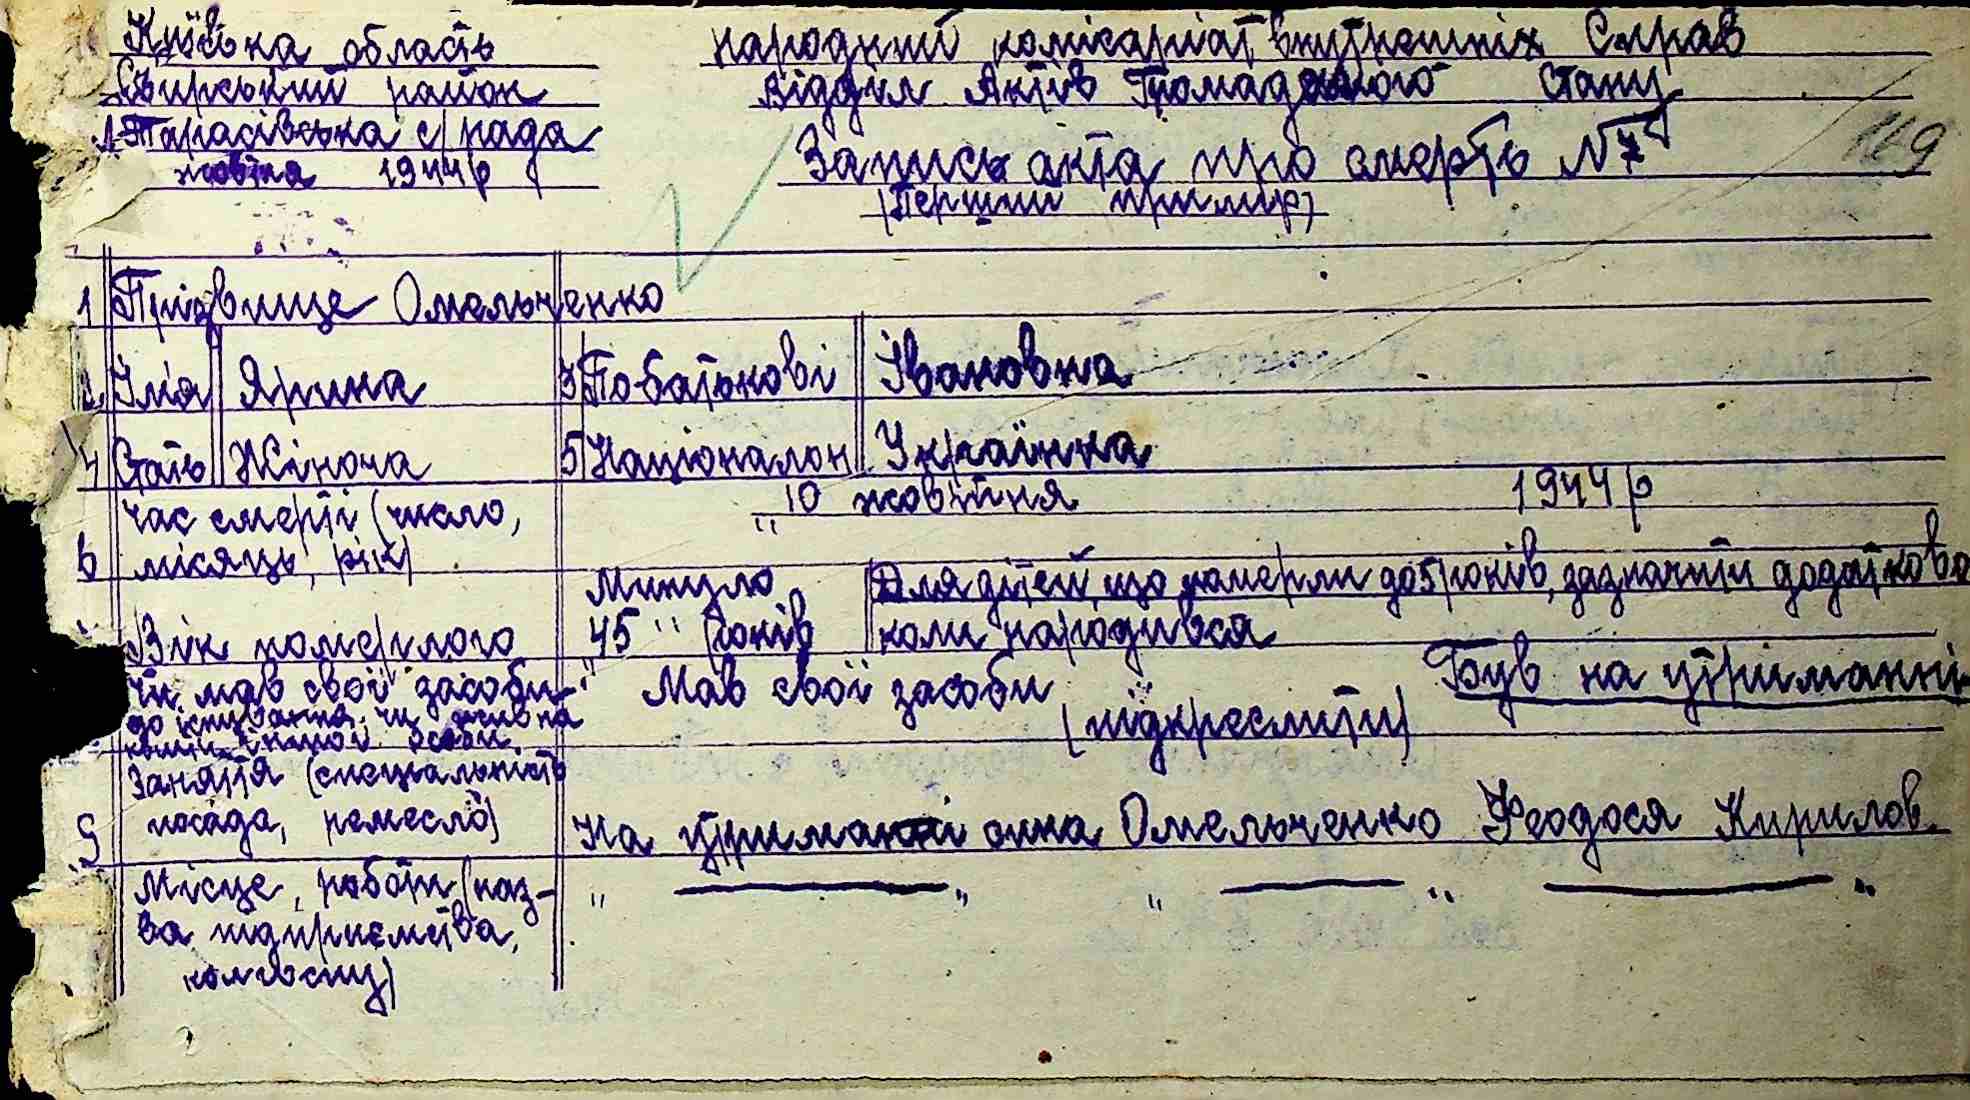 Київська область
народний комісаріат внутрешніх Справ
Сквирський район
Відділ Актів Громадського Стану
Тарасівська с/рада
жовтня 1944р
Запись акта про смерть N7
119
(Перший примир)
1 Прізвище Омельченко
2 Імя Ярина 3 Побатькові Івановна
4 Стать Жіноча 5 Національн Українка
6 час смерті (число, місяць, рік) "10 жовтня 1944р
Вік померлого Минуло 45" років
Для дітей, що померли до 5 років, зазначити додатково коли народився
чи мав свої засоби
до існування, чи жив на
кошти іншої особи
Мав свої засоби (підкреслити) Був на утриманні
9 Заняття (спеціальність посада, ремесло)
На утриманні сина Омельченко Феодося Кирилов.
Місце роботи (наз-
ва підприємства,
колгоспу)
" — " " — " — "